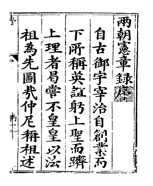 兩朝憲章錄序
自古御宇宰治自創業而
下所稱英誼躬上聖而躋
上理者易嘗不皇皇以法
祖為先圖哉仲尼稱祖述